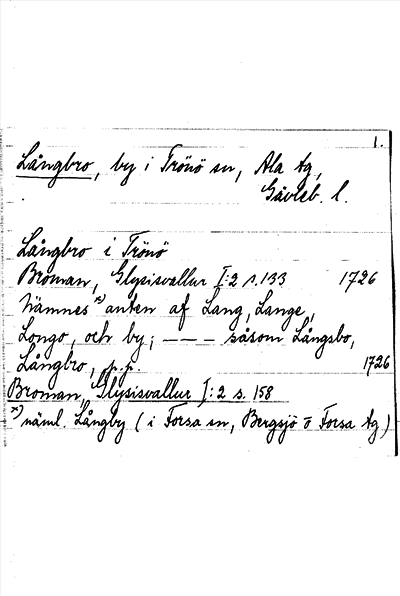 1.
Långbro, by i Trönö sn, Ala tg,
Gävleb. l.
Långbro i Trönö
Broman, Glysisvallur I:2 s. 133 1726
Nämnes x) anten af Lang, Lange,
Longo, och by; – – – såsom Långsbo,
Långbro, p.p. 1726
Broman, Glysisvallur I:2 s. 158
x) näml. Långby (i Forsa sn, Bergsjö o Forsa tg)